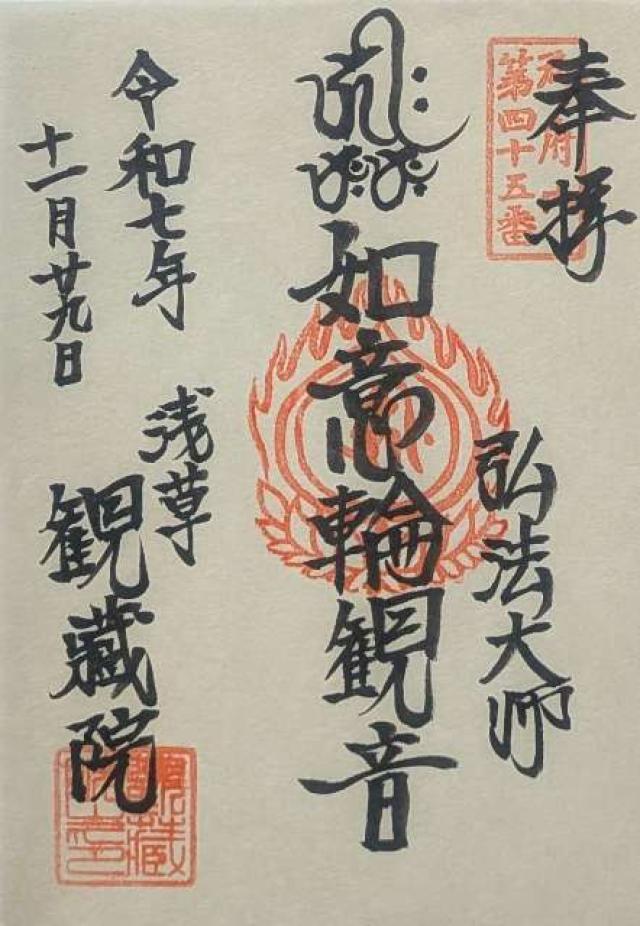 奉拝
第四十五番
弘法大師
如意輪観音
令和七年
十一月廿九日
浅草
観蔵院